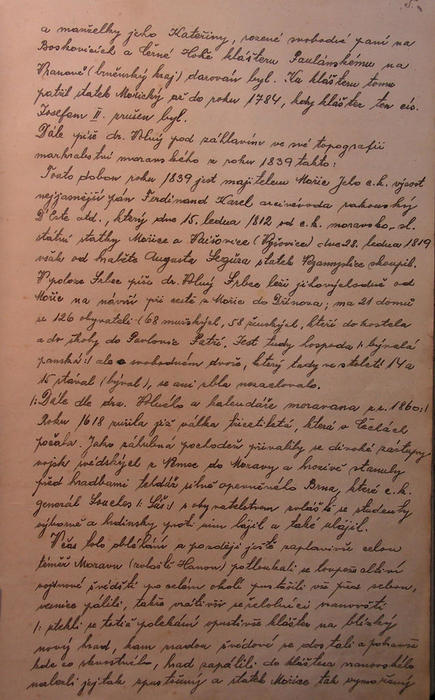 5.
a manželky jeho Kateřiny, rozené svobodné paní na
Boskovicích a Černé Hoře klášteru Paulánskému na
Vranově (brněnský kraj) darován byl. Ku klášteru tomu
patřil statek Mořický až do roku 1784, kdy klášter ten cís.
Josefem II. zrušen byl.
Dále píše dr. Volný pod záhlavím ve své topografii
markrabství moravského z roku 1839 takto:
Touto dobou roku 1839 jest majitelem Mořic Jeho c.k. výsost
nejjasnější pán Ferdinand Karel arcivévoda rakouský
D'Este atd., který dne 15. ledna 1812 od c.k. moravsko, sl.
státní statky Mořice a (Vejšovice) dne 28. ledna 1819
však od hraběte Augusta Segura statek koupil.
V poloze Srbce píše dr. Volný Srbce leží jihovýchodně od
Mořic na návrší při cestě z Mořic do Dřínova; má 21 domů
se 126 obyvateli (68 mužských, 58 ženských, kteří do kostela
a do školy do Pavlovic Patří. Jest tudy hospoda /: bývalá
panská :/ ale o svobodném dvoře, který tady ve století 14 a
15 stával (býval), se ani zbla nezachovalo.
/: Dále dle dra. Hlučko a kalendáře moravana z r. 1860 :/
Roku 1618 zuřila již válka třicetiletá, která v Čechách
počala. Jako záhubná pochodeň přivality se divoké zástupy
vojsk švédských z Němec do Moravy a hrozivě stanuly
před hradbami tehdáž silně opevněného Brna, které c.k.
generál Souches /: Suš :/ s obyvatelstvem zvláště se studenty
výborně a hrdinsky proti nim hájil a také uhájil.
Včas toho obléhání a později ještě zaplavivše celou
téměř Moravu (zvláště Hanou) potloukali se loupežchtiví
vojínové švédští po celém okolí pustošili vše před sebou,
vesnice pálili, takže
/: stekli se totiž polekáni opustivše kláštera na blízký
nový hrad, kam snadno švédové se dostali a pobravše
kde co skvostného, hrad zapálili do kláštera vranovského
nalezli jej tak spustošený a statek Mořice tak vymořený